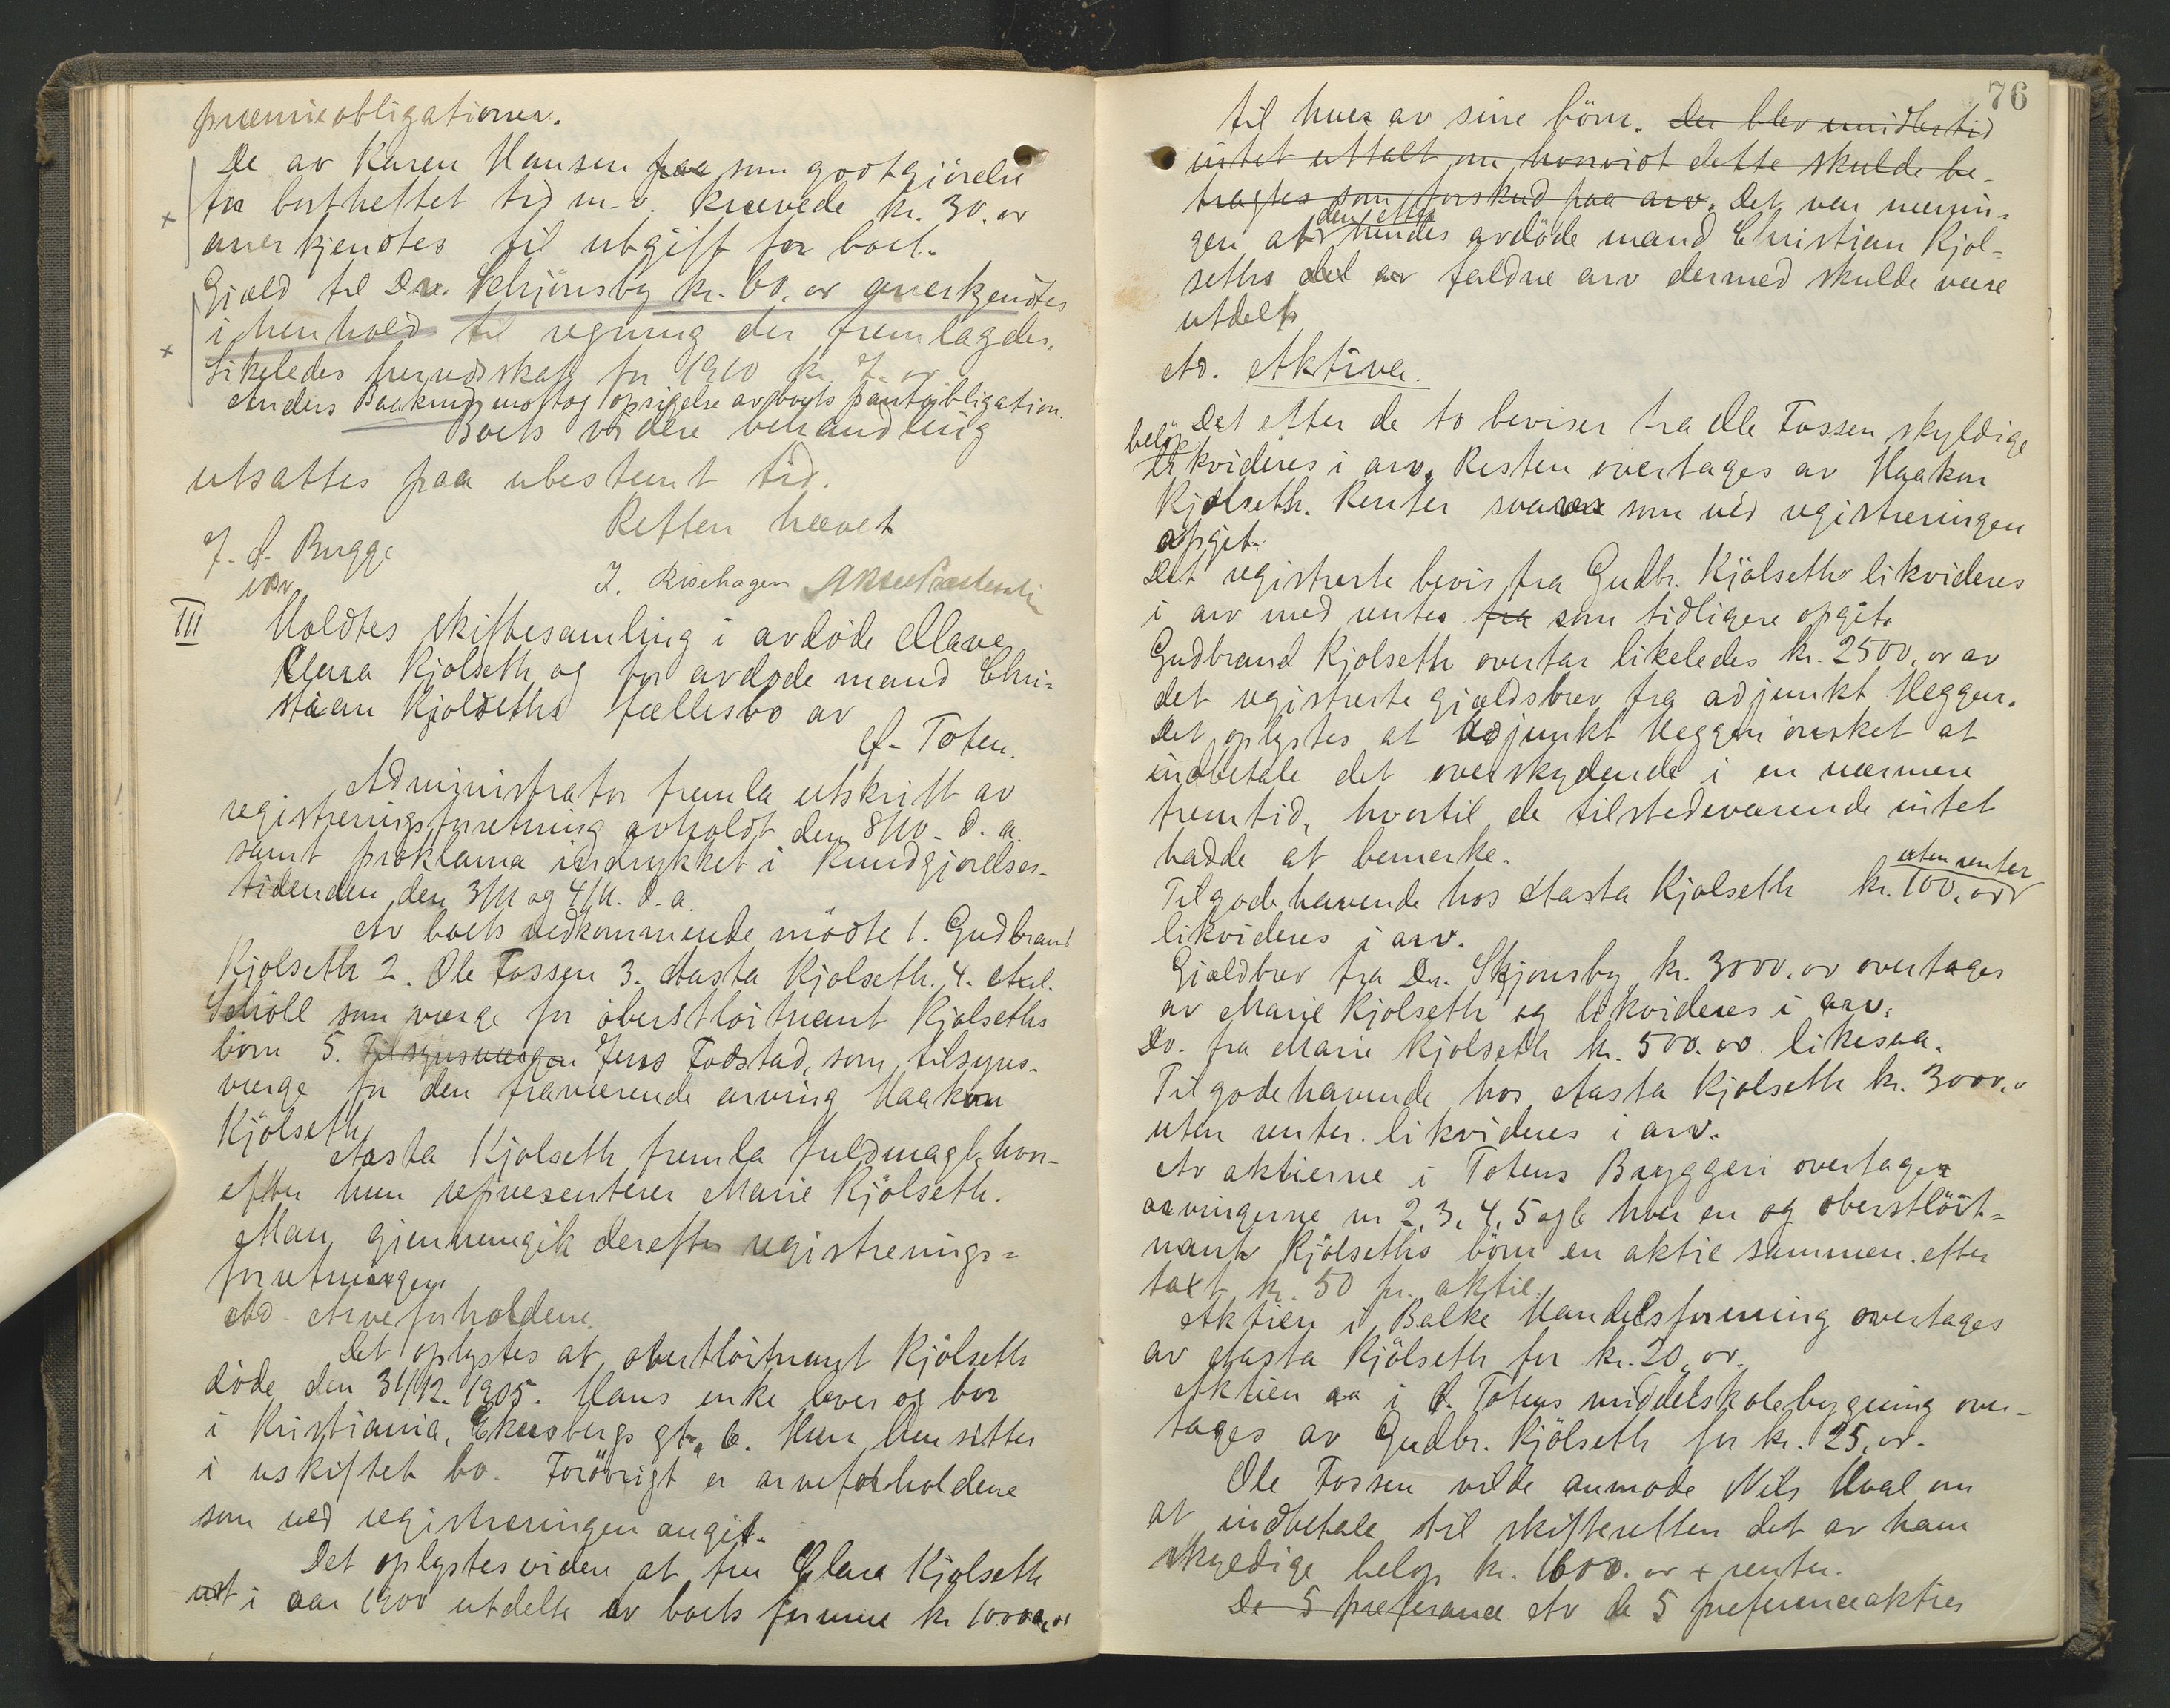 præmieobligationer.
De av Karen Hansen paa som godtgjörelse
for bortheftet tid m.v. krævede kr. 30. or
anerkjendtes til utgift for boet.
Gjæld til Dr. Schjönsby kr. 60. or anerkjendtes
i henhold til regning der fremlagdes.
Likeledes herredsskat for 1910 kr. 7. or
Anders Baekens mottog opsigelse av boets pantobligation.
Boets videre behandling
utsattes paa ubestemt tid.
Retten hævet
J. A. Bugge
J. Risehagen
III
Holdtes skiftesamling i avdöde Maren
Clara Kjolseth og for avdøde mand Chri-
stian Kjolseths fællesbo av
Ø. Toten.
Administrator fremla utskrift av
registreringsforretning avholdt den 8/10. d. a.
samt proklama indrykket i Kundgjørelses-
tidenden den 3/11 og 4/11. d. a.
Av boets vedkommende mödte 1. Gudbrand
Kjolseth 2. Ole Fossen 3. Aasta Kjolseth. 4. Axel.
Schiöll som værge for oberstlöitnant Kjolseths
börn 5. Tilsynsværgen Jens Fodstad, som tilsyns-
værge for den fraværende arving Haakon
Kjölseth.
Aasta Kjolseth fremla fuldmagt hvor-
efter hun repræsenterer Marie Kjölseth.
Man gjennemgik derefter registrerings-
forretningen
Ad. Arveforholdene.
Det oplystes at oberstlöitnant Kjölseth
döde den 31/12. 1905. Hans enke lever og bor
i Kristiania, Ekersbergs gt. 6. Hun hensitter
i uskiftet bo. Forövrigt er arveforholdene
som ved registreringen angit.
Det oplystes viden at fru Clara Kjolseth
i aar 1900 utdelte av boets formue kr 10000, or
76
til hver av sine börn. Der blev imidlertid
intet uttalt om hvorvidt dette skulde be-
tragtes som forskud paa arv. Det var menin-
gen at den efter hendes avdöde mand Christian Kjol-
seths del av faldne arv dermed skulde være
utdelt
Ad. Aktiva.
Det efter de to beviser fra Ole Fossen skyldige
belöp
likvideres i arv. Resten overtages av Haakon
Kjolseth. Renter svares som ved registreringen
opgit.
Det registrerte bevis fra Gudbr. Kjölseth likvideres
i arv med renter fra som tidligere opgit.
Gudbrand Kjolseth overtar likeledes kr. 2500, or av
det registrerte gjældsbrev fra adjunkt Heggen.
Det oplystes at Adjunkt Heggen önsket at
indbetale det overskydende i en nærmere
fremtid, hvortil de tilstedeværende intet
hadde at bemerke.
Tilgodehavende hos Aasta Kjolseth kr. 100, or uten renter
likvideres i arv.
Gjældbrev fra Dr. Skjönsby kr. 3000. or overtages
av Marie Kjölseth og likvideres i arv.
Do. fra Marie Kjolseth kr. 500. or. likesaa.
Tilgodehavende hos Aasta Kjolseth kr. 3000. or
uten renter. likvideres i arv.
Av aktierne i Totens Bryggeri overtager
arvingerne nr 2, 3, 4, 5 og 6 hver en og oberstlöit-
nant Kjölseths börn en aktie sammen. efter
taxt kr. 50 pr. aktie.
Aktien i Balke Handelsforening overtages
av Aasta Kjölseth for kr. 20, or.
Aktien aa i Ø. Totens middelskolebygning over-
tages av Gudbr. Kjölseth for kr. 25, or.
Ole Fossen vilde anmode Nils Hval om
at indbetale til skifteretten det av ham
skyldige belop kr. 1600. or + renter.
De 5 preferance Av de 5 preferenceaktier